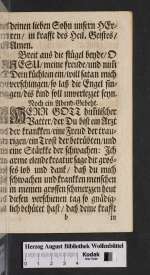 deinen lieben Sohn unsern HEr-
ren / in krafft des Heil. Geistes /
Amen.
Breit aus die flügel beyde / O
JESU / meine freude / und nim
Dein küchlein ein / will satan mich
verschlingen / so laß die Engel sin-
gen / diß kind soll unverletzet seyn.
Noch ein Abend-Gebeht.
HERR GOTT himlischer
Vatter / der Du bist ein Arzt
der krancken / eine Freud der trau-
rigen / ein Trost der betrübten / und
eine Stärcke der schwachen: Ich
arme elende kreatur sage dir gros-
ses lob und danck / daß du mich
schwachen und krancken menschen
in meinen grossen schmertzen heut
diesen verschienen tag so gnädig-
lich behütet hast / daß deine krafft
b
in
Herzog August Bibliothek Wolfenbüttel